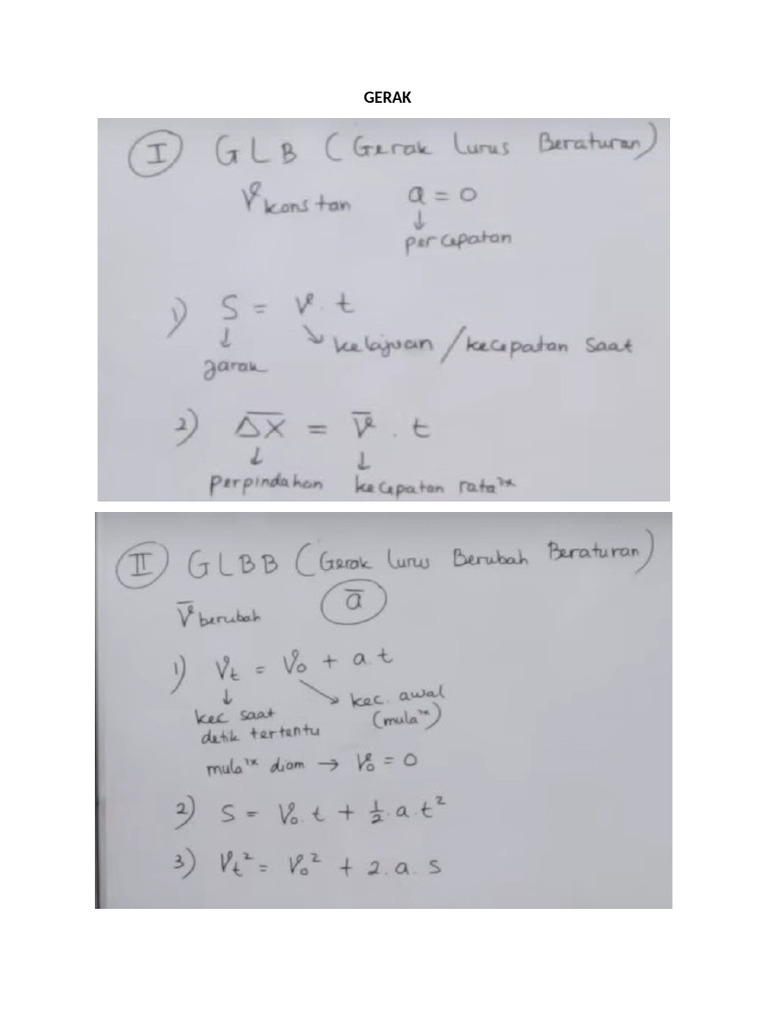 GERAK
I GLB (Gerak Lurus Beraturan)
V konstan a = 0
↓
percepatan
1) S = v . t
↓ ↘ kelajuan / kecepatan saat
jarak
2) Δx̅ = v̅ . t
↓ ↓
perpindahan kecepatan rata²x
II GLBB (Gerak Lurus Berubah Beraturan)
v̅ berubah a̅
1) Vt = Vo + a.t
↓ ↘ kec. awal
kec saat (mula²x)
detik tertentu
mula²x diam → Vo = 0
2) S = Vo. t + ½.a.t²
3) Vt² = Vo² + 2.a.s